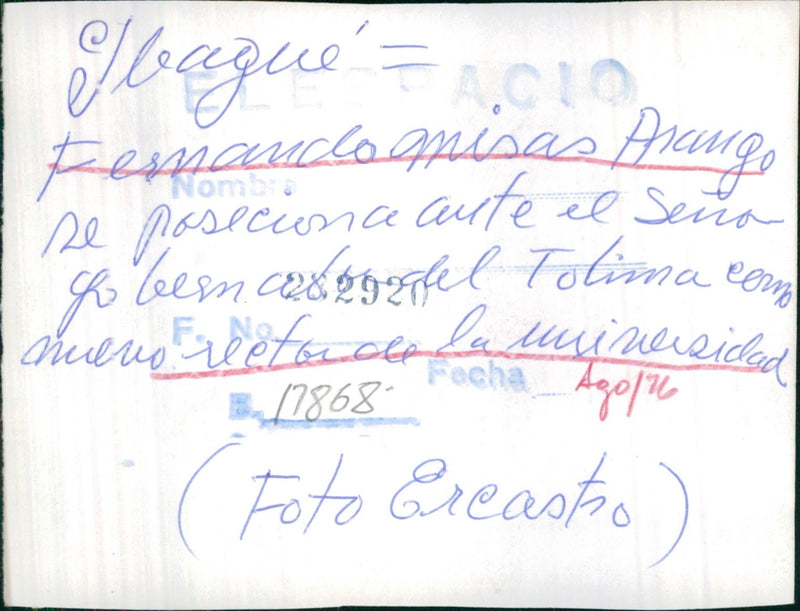 Ibagué =
EL ESPACIO
Fernando misas Arango
Nombre
se posesiona ante el Seño
gobernador del Tolima como
282920
F. No.
nuevo rector de la universidad
Fecha Ago/76
B. 17868
(Foto Ercastro)